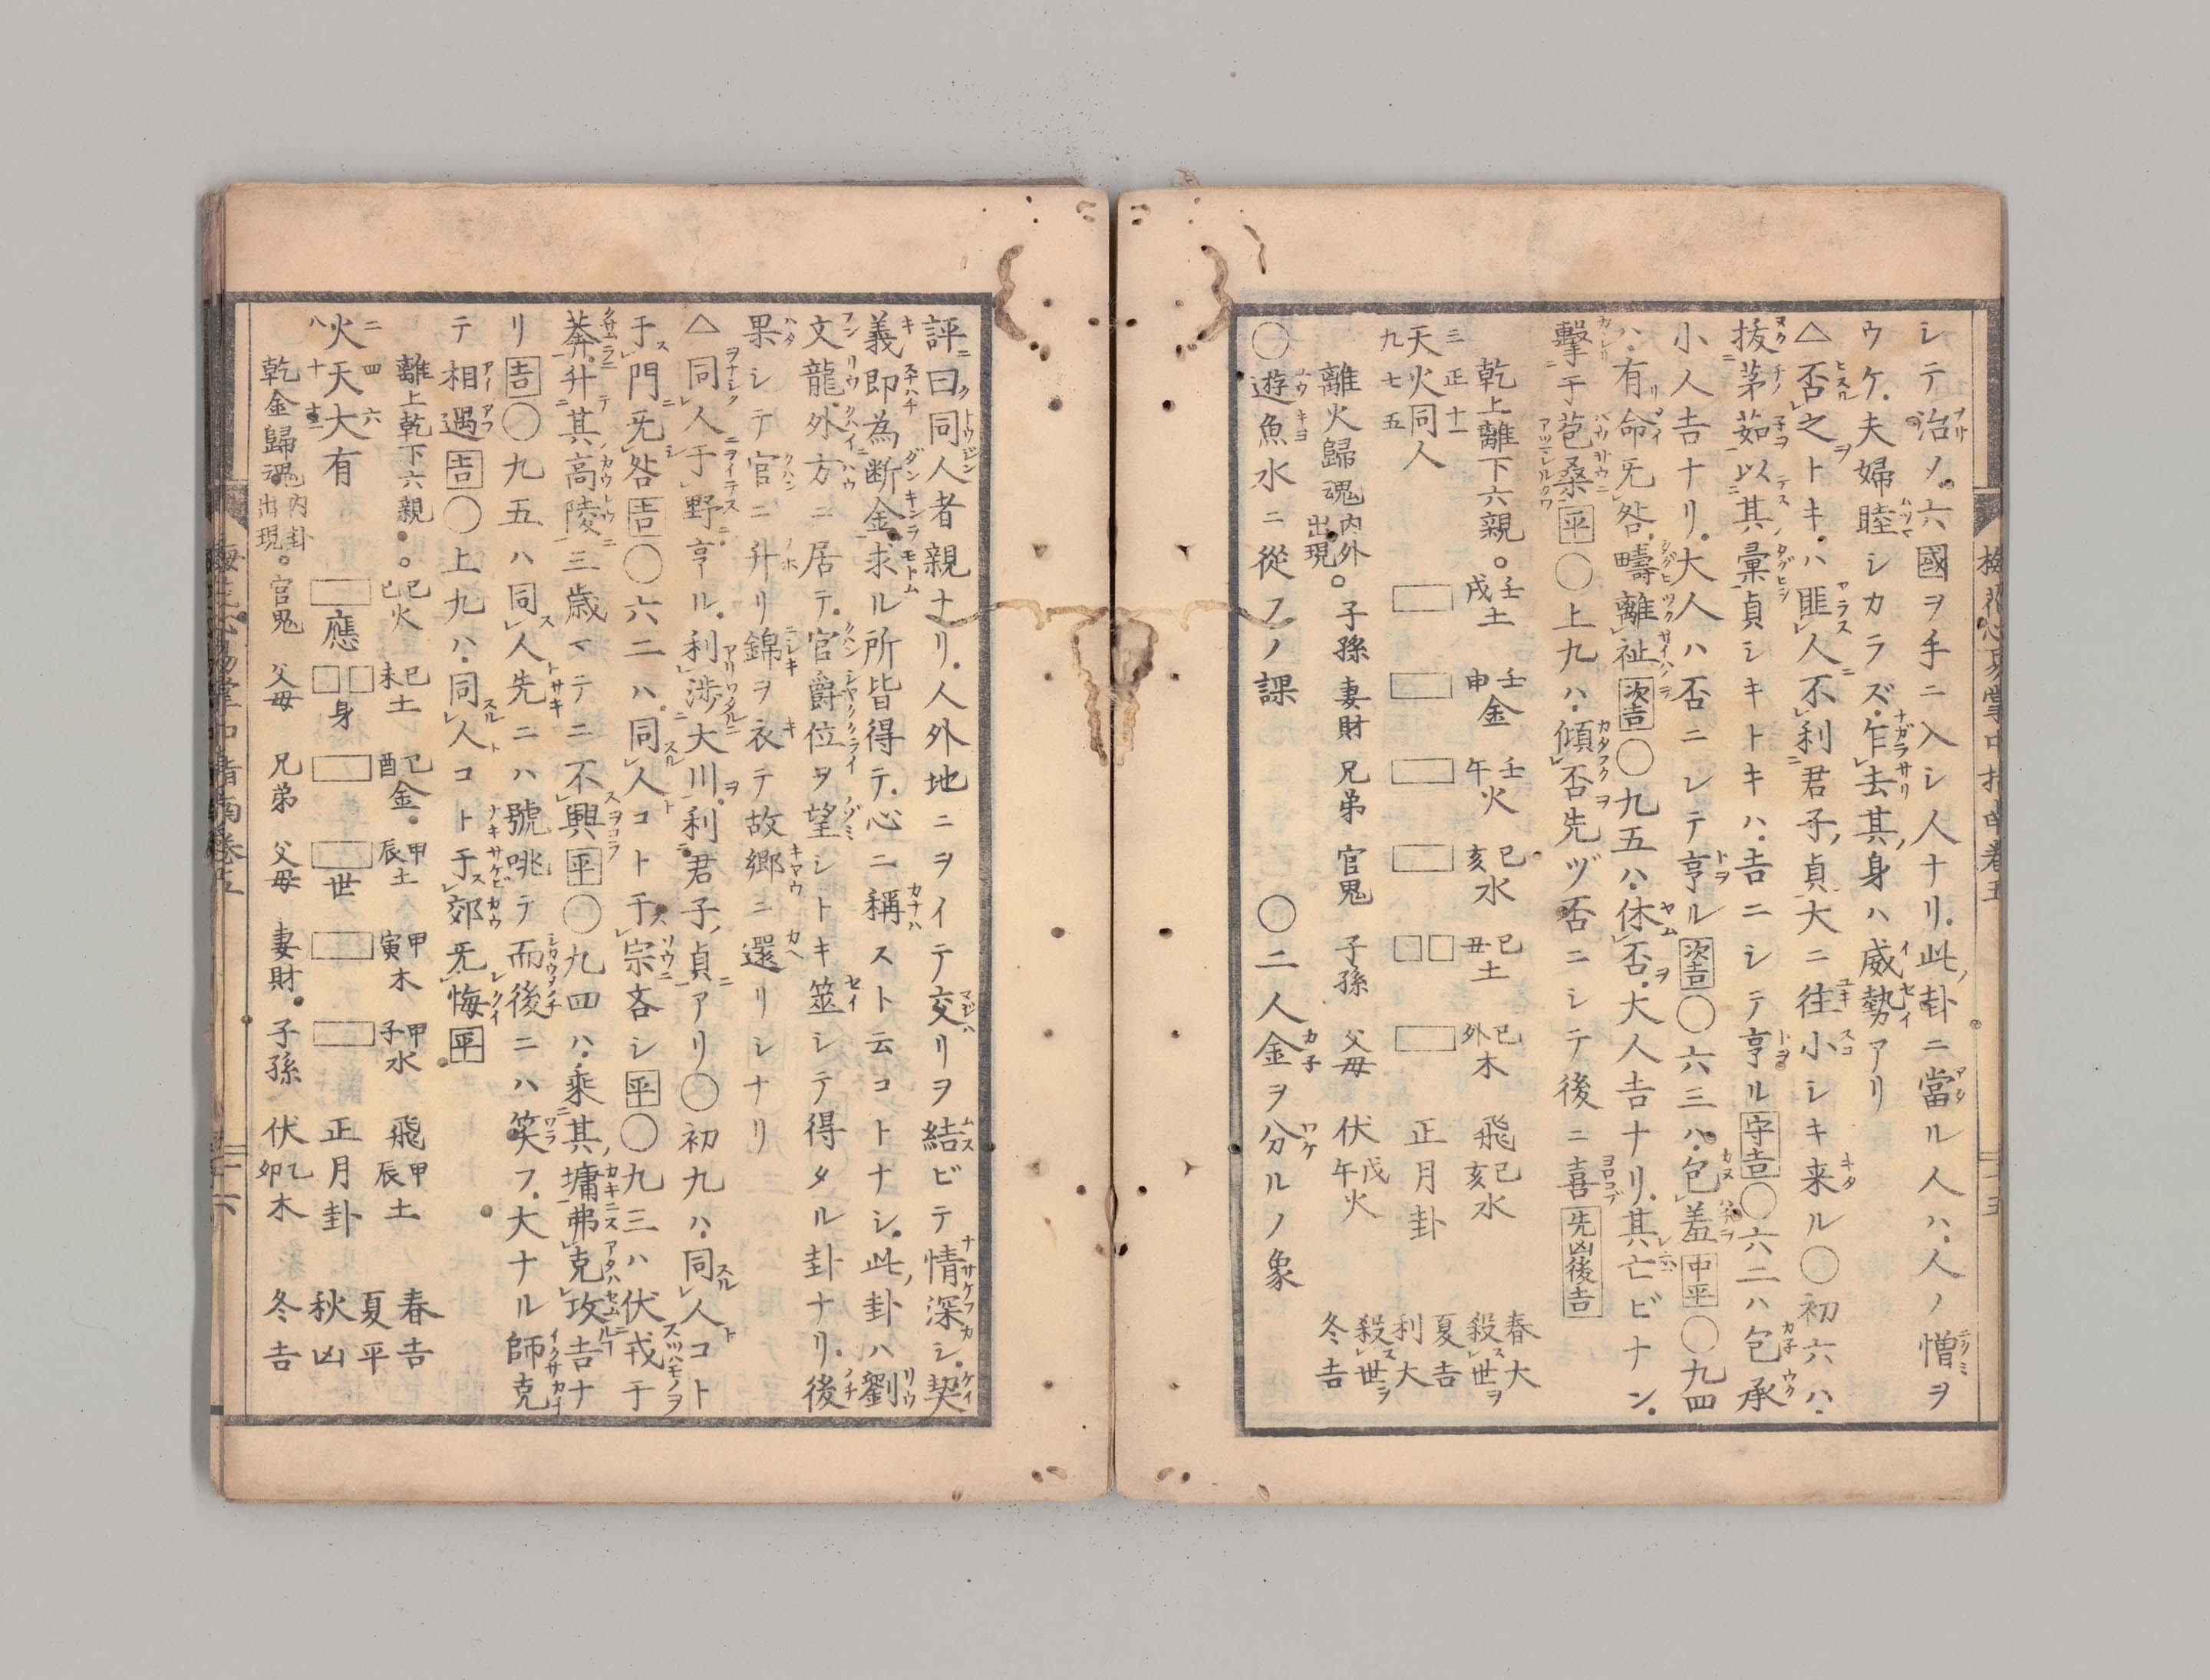 シテ治ノ六國ヲ手ニ入シ人ナリ此卦ニ當ル人ハ人ノ憎ヲ
ウケ夫婦睦シカラズ乍去其身ハ威勢アリ
△否之トキハ匪人不利君子貞大ニ往小シキ来ル〇初六ハ
抜茅茹以其彙貞シキトキハ吉ニシテ亨ル守吉〇六二ハ包承
小人吉ナリ大人ハ否ニシテ亨ル次吉〇六三ハ包羞中平〇九四
ハ有命无咎疇離祉次吉〇九五ハ休否大人吉ナリ其亡ビナン
擊于苞桑平〇上九ハ傾否先ヅ否ニシテ後ニ喜先凶後吉
乾上離下六親。壬戌土 壬申金 壬午火 己亥水 己丑土 己外木 飛己亥水 春大殺世ヲ
三正十一
天火同人 正月卦 夏吉利大
九七五
離火歸魂内外出現。子孫 妻財 兄弟 官鬼 子孫 父母 伏戊午火 殺世ヲ冬吉
〇遊魚水ニ從フノ課 〇二人金ヲ分ルノ象
評曰同人者親ナリ人外地ニヲイテ交リヲ結ビテ情深シ契
義即為断金求ル所皆得テ心ニ稱ストス云コトナシ此卦ハ劉
文龍外方ニ居テ官爵位ヲ望シトキ筮シテ得タル卦ナリ後
果シテ官ニ升リ錦ヲ衣テ故郷ニ還リシナリ
△同人于野亨ル利涉大川利君子貞アリ〇初九ハ同人コト
于門无咎吉〇六二ハ同人コト于宗吝シ平〇九三ハ伏戎于
莽升其高陵三歳マテニ不興平〇九四ハ乘其墉弗克攻吉ナ
リ吉〇九五ハ同人先ニハ號咷テ而後ニハ笑フ大ナル師克
テ相遇吉〇上九ハ同人コト于郊无悔平
離上乾下六親。己巳火 己未土 己酉金 甲辰土 甲寅木 甲子水 飛甲辰土 春吉夏平
二四六
火天大有 應 身 世 正月卦 秋凶
八十十二
乾金歸魂内卦出現。官鬼 父母 兄弟 父母 妻財 子孫 伏乙卯木 冬吉